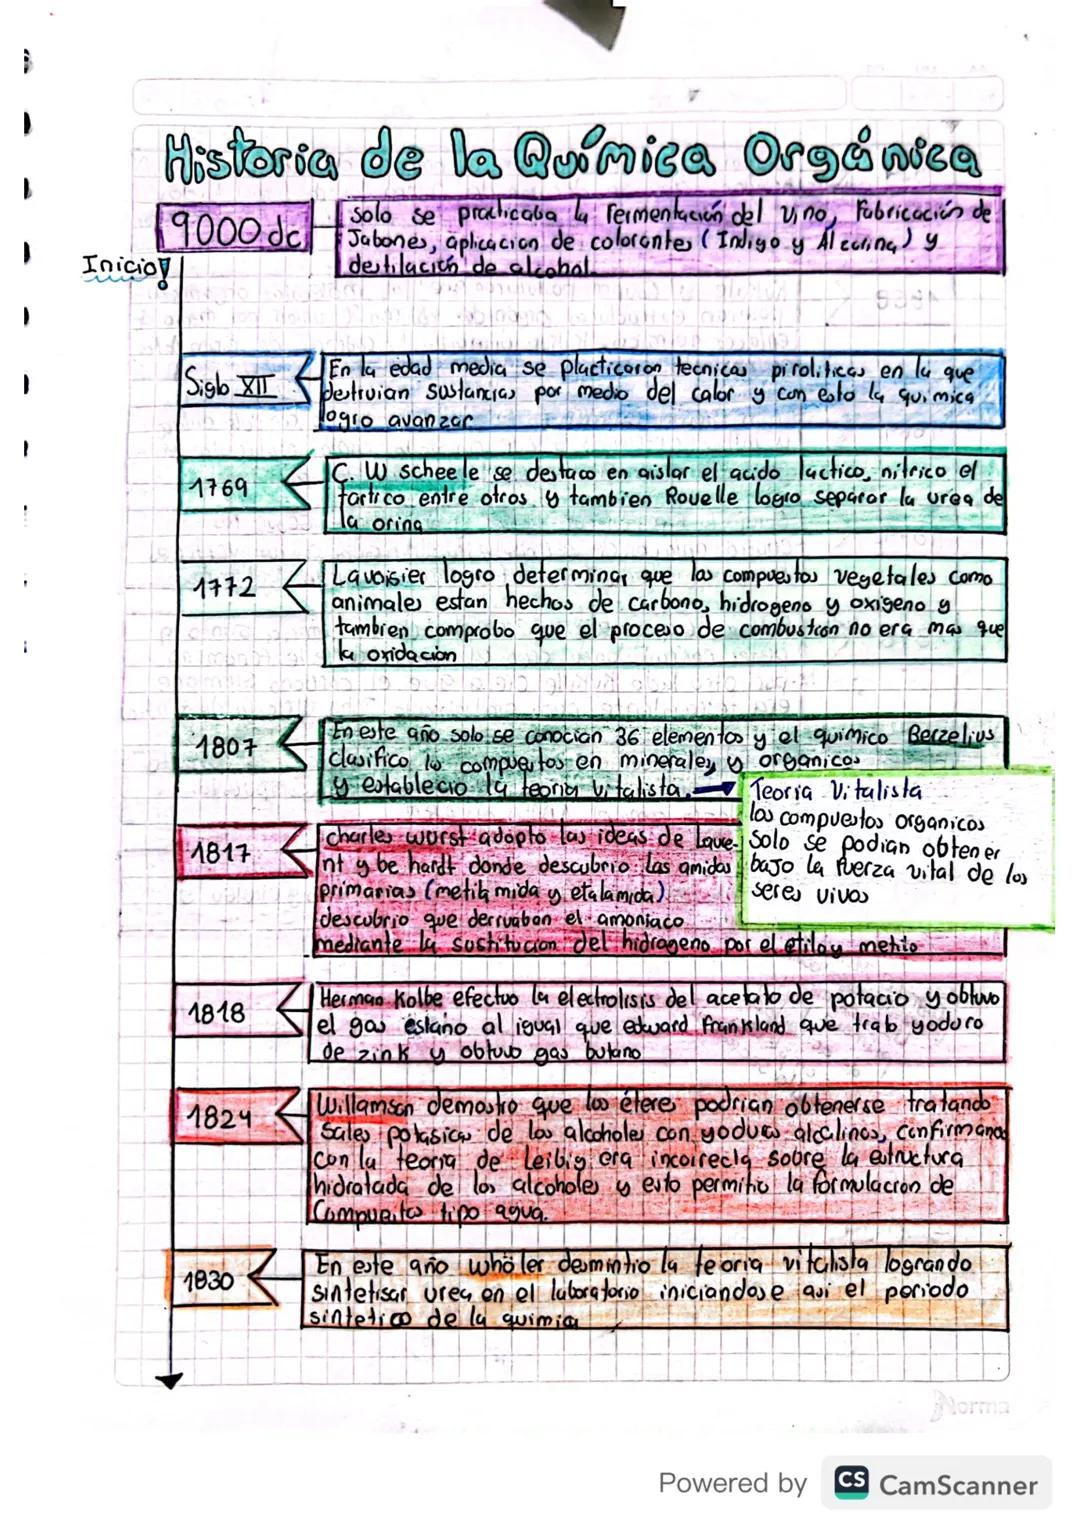 Historia de la Química Orgánica
9000 dc
solo se practicaba la fermentación del vino, Fabricación de
Jabones, aplicacion de colorantes (Indigo y Alearina) y
destilación de alcohol.
Inicio!
Siglo XII
En la edad media se placticaron tecnicas piroliticas en la que
destruian sustancias por medio del calor y con esto la quimica
logro avanzar
1769
C. W scheele se destaco en aislar el acido lactico, nitrico el
tartico entre otros y tambien Rouelle logro separar la urea de
la orina
1772
Lavoisier logro determinar que los compuestos vegetales como
animales estan hechos de carbono, hidrogeno y oxigeno y
tambien comprobo que el proceso de combustion no era mas que
la oxidación
1807
En este año solo se conocian 36 elementos y el quimico Berzelius
clasifico los compuestos en minerales y organicos
y establecio la teoria vitalista.
Teoria Vitalista
los compuestos organicos
solo se podian obtener
bajo la fuerza vital de los
seres vivos
1817
charles wurst adopto las ideas de Laure-
nt y be hardt donde descubrio las amidas
primarias (metilamida y etalamida)
descubrio que derivaban el amoniaco
mediante la sustitucion del hidrageno por el etilo y metilo
1818
Herman Kolbe efectuo la electrolisis del acetato de potacio y obtuvo
el gas estano al igual que edward frankland que trab yoduro
de zink y obtuvo gas butano
1824
Willamson demostro que los éteres podrian obtenerse tratando
sales potasicas de los alcoholes con yoduros alcalinos, confirmando
con la teoria de Leibig era incorrecta sobre la estructura
hidratada de los alcoholes y esto permitio la formulacion de
Compuestos tipo agua.
1830
En este año whöler desmintio la teoria vitalista logrando
sintetisar urea en el laboratorio iniciandose asi el periodo
sintetico de la quimia
Norma
Powered by CS CamScanner